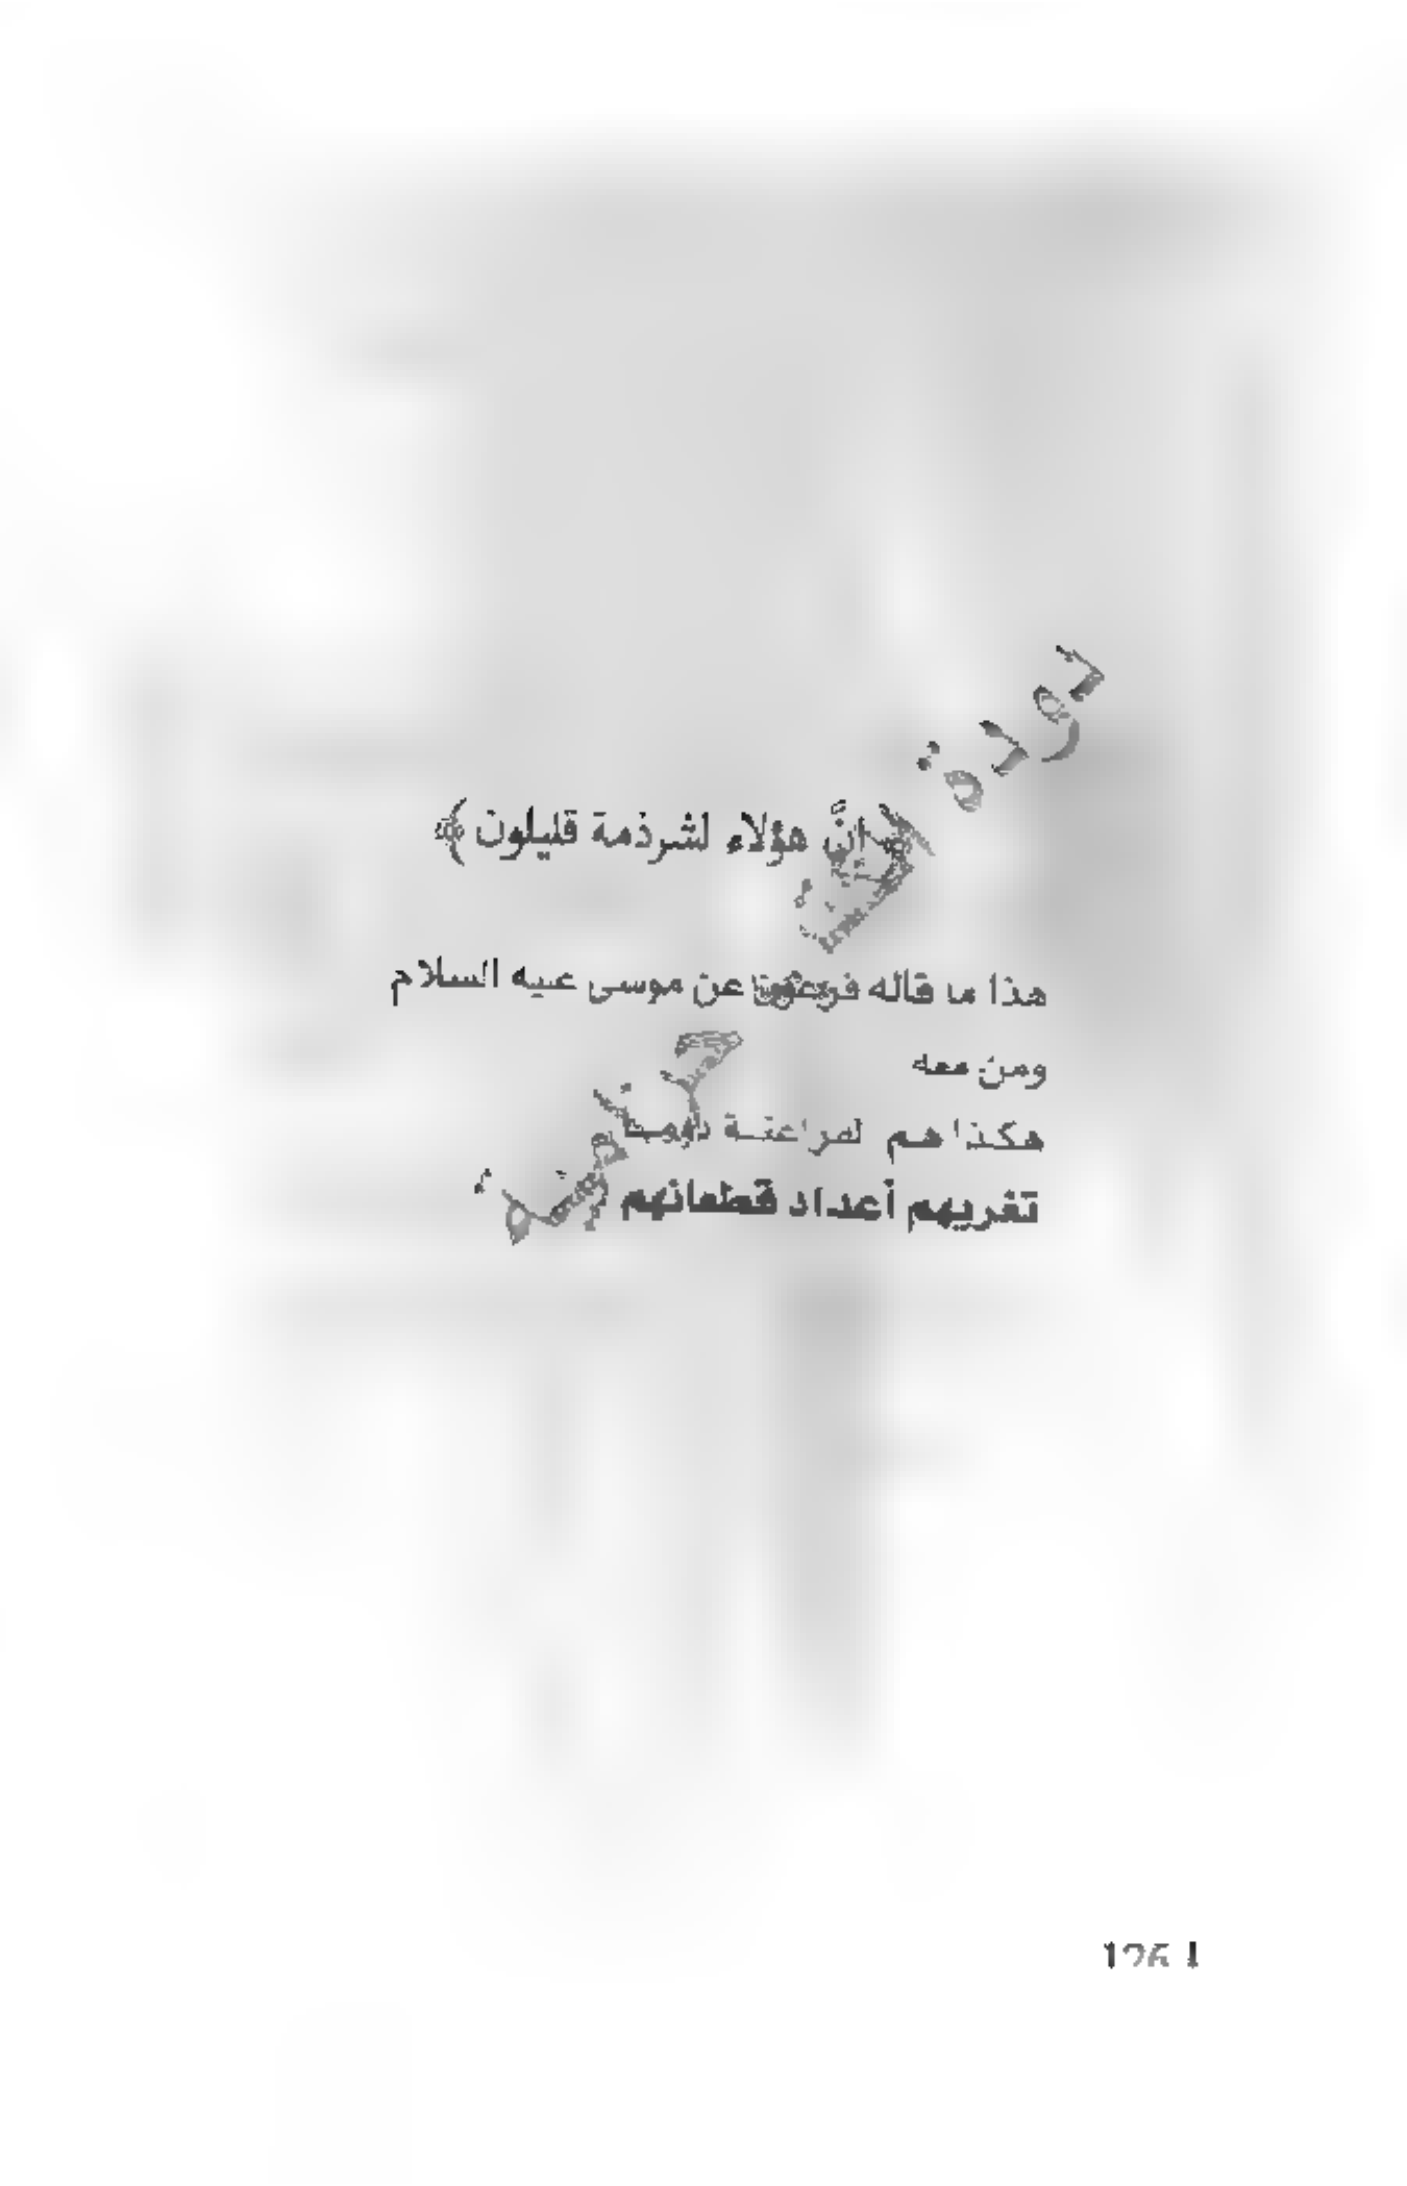 ﴿ إنَّ هؤلاء لشرذمة قليلون ﴾
هذا ما قاله فرعون عن موسى عليه السلام
ومن معه
هكذا هم الفراعنة دومـا
تغريهم أعداد قطعانهم
126